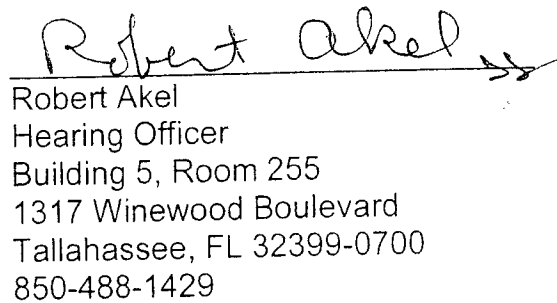 Robert Akel
Robert Akel
Hearing Officer
Building 5, Room 255
1317 Winewood Boulevard
Tallahassee, FL 32399-0700
850-488-1429